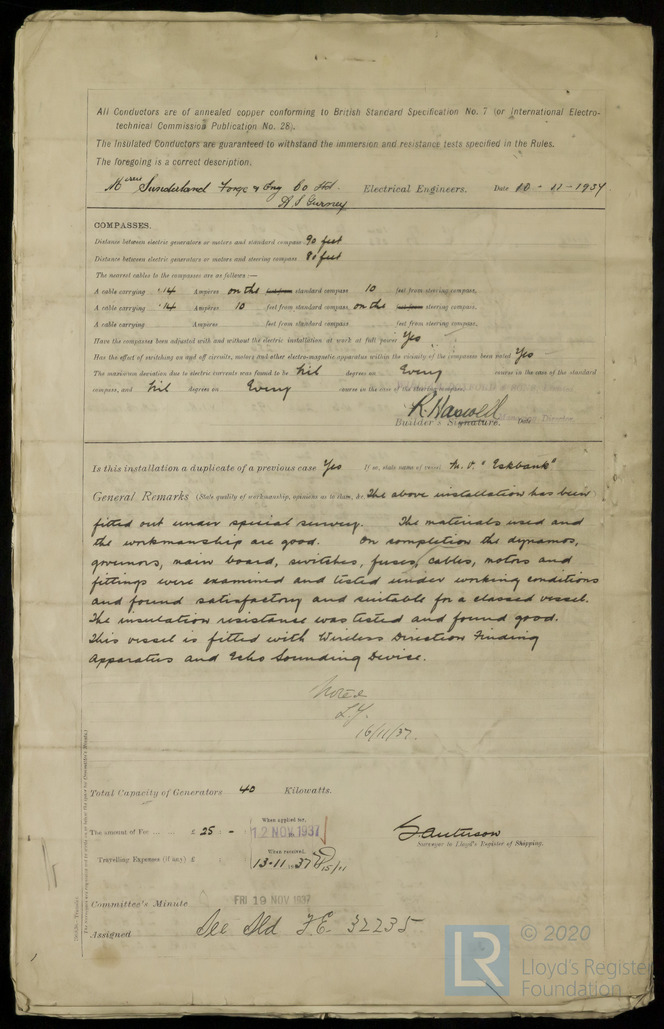 All Conductors are of annealed copper conforming to British Standard Specification No. 7 (or International Electro-
technical Commission Publication No. 28).
The Insulated Conductors are guaranteed to withstand the immersion and resistance tests specified in the Rules.
The foregoing is a correct description.
Sunderland Forge & Eng Co Ltd. Electrical Engineers. Date 10 - 11 - 1937
A S Gurney
COMPASSES.
Distance between electric generators or motors and standard compass 90 feet
Distance between electric generators or motors and steering compass 80 feet
The nearest cables to the compasses are as follows :—
A cable carrying .14 Ampères on the standard compass 10 feet from steering compass.
A cable carrying .14 Ampères 10 feet from standard compass, on the steering compass.
A cable carrying Ampères feet from standard compass feet from steering compass.
Have the compasses been adjusted with and without the electric installation at work at full power Yes
Has the effect of switching on and off circuits, motors and other electro-magnetic apparatus within the vicinity of the compasses been noted Yes
The maximum deviation due to electric currents was found to be Nil degrees on Every course in the case of the standard
compass, and Nil degrees on Every course in the case of the steering compass.
R. Haswell
Builder's Signature. Date
Is this installation a duplicate of a previous case Yes If so, state name of vessel M.V. "Eskbank"
General Remarks (State quality of workmanship, opinions as to them, &c. The above installation has been
fitted out under special survey. The materials used and
the workmanship are good. On completion the dynamos,
governors, main board, switches, fuses, cables, motors and
fittings were examined and tested under working conditions
and found satisfactory and suitable for a classed vessel.
The insulation resistance was tested and found good.
This vessel is fitted with Wireless Direction Finding
Apparatus and Echo Sounding Devise.
Noted
16/11/37.
Total Capacity of Generators 40 Kilowatts.
When applied for,
The amount of Fee ... ... £ 25 - 12 NOV 1937
Surveyor to Lloyd's Register of Shipping.
When received,
Travelling Expenses (if any) £ 13-11 1937 15/11
Committee's Minute FRI 19 NOV 1937
Assigned See Sld F.E. 32235
LR © 2020
Lloyd's Register
Foundation